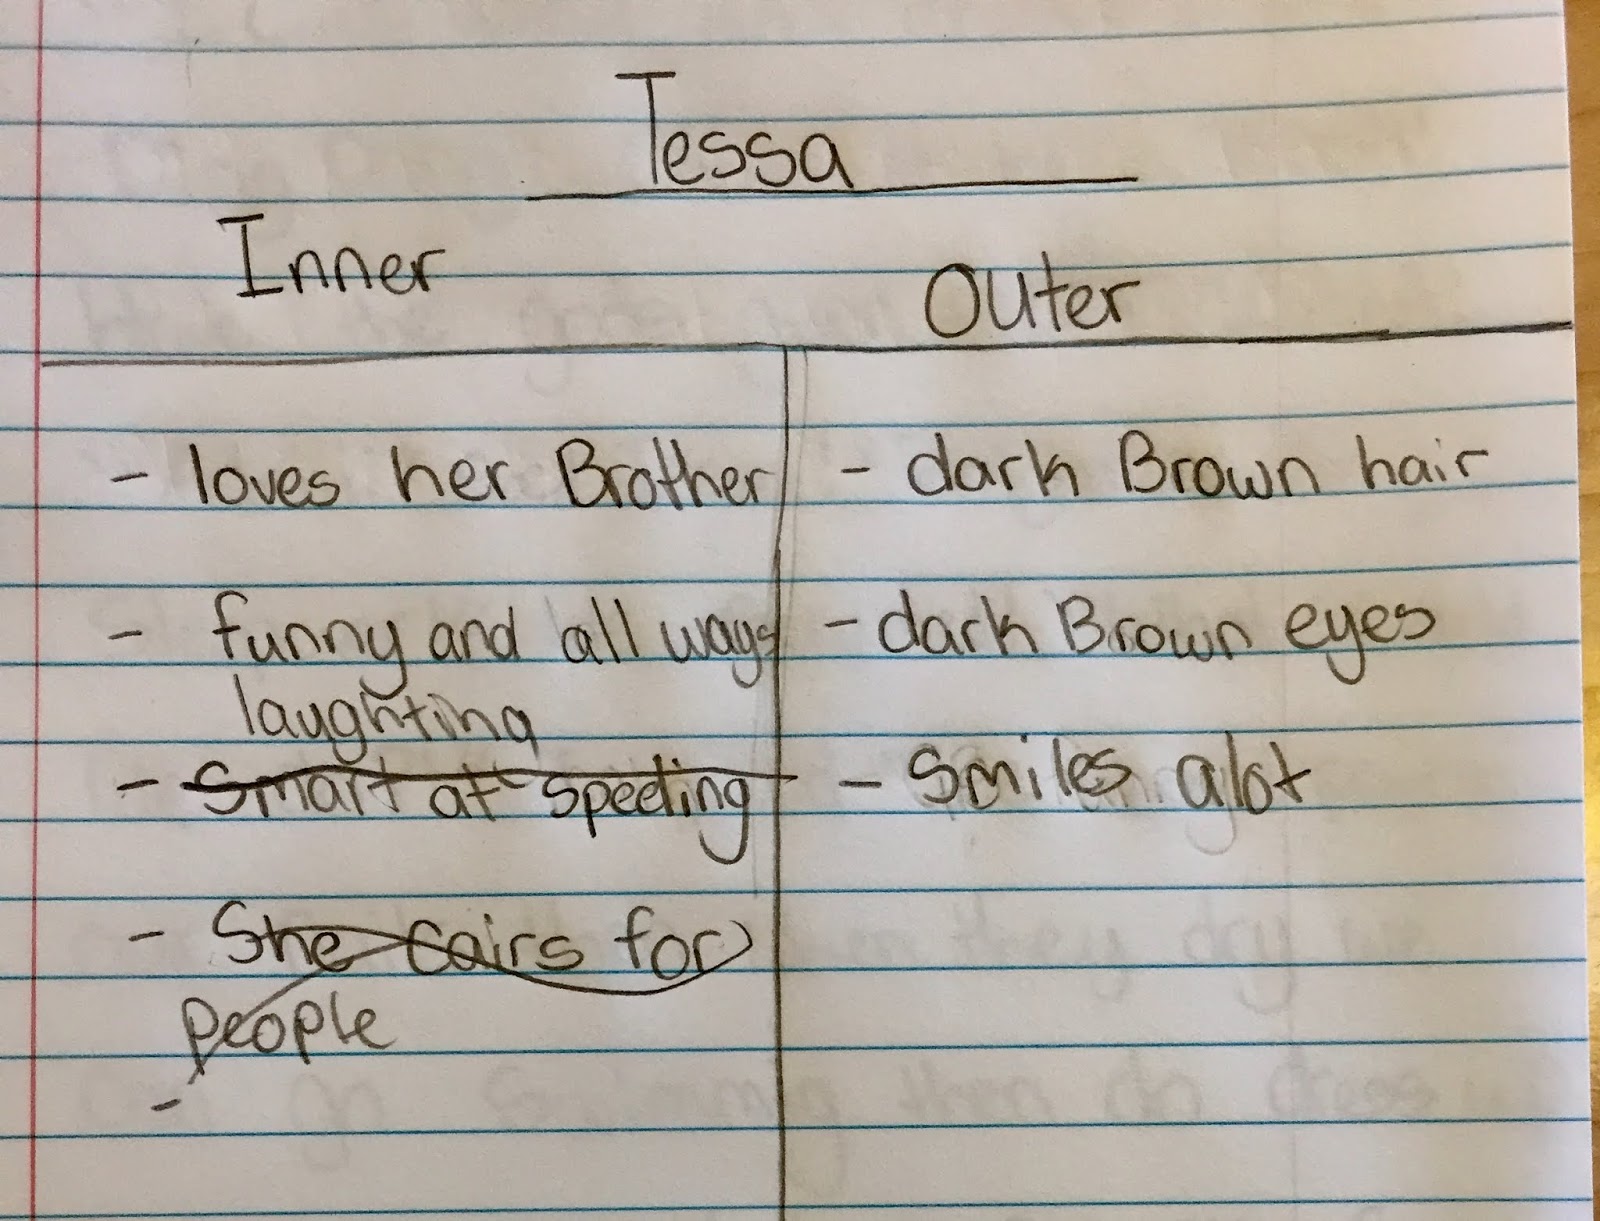 Tessa
Inner
Outer
- loves her Brother
- funny and all ways
laughting
- Smart at speeling
- She cairs for
people
-
- dark Brown hair
- dark Brown eyes
- Smiles alot